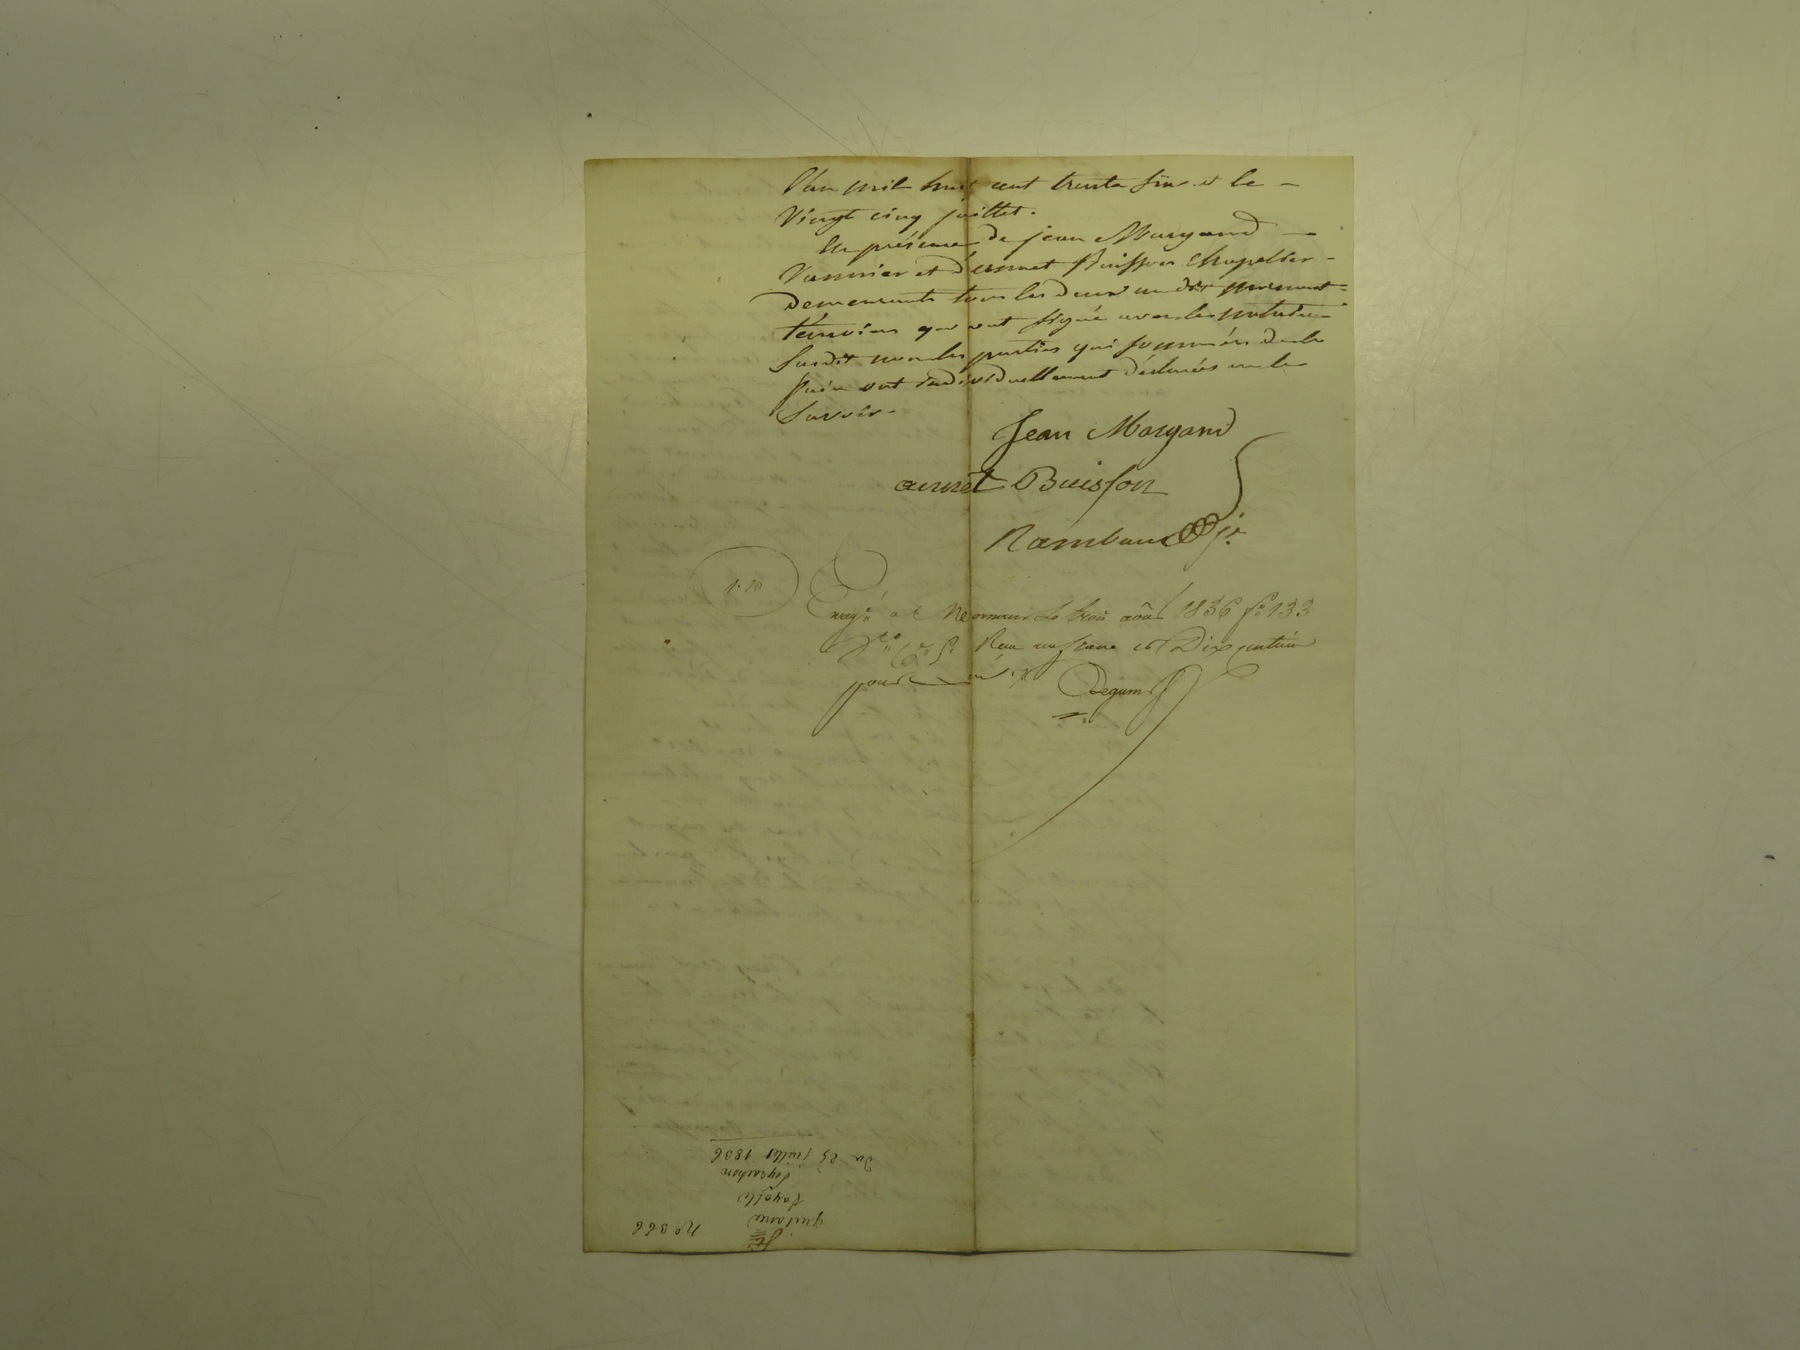 L'an mil huit cent trente six et le -
Vingt cinq juillet.
En présence de jean Morgand -
Vannier et d'annet Buisson Chapelier -
demeurants tous les deux au dit
témoins qui ont signé avec le notaire
Susdit non les parties qui sommées de le
faire ont individuellement déclarés ne le
Savoir.
Jean Morgand
annet Buisson
Rambaud jr.
1.10
Enregté à le trois août 1836 fo 133
Ro Reçu un franc et Dix centimes
pour
Degum
No 366
quitance
Fayolle
du 25 juillet 1836